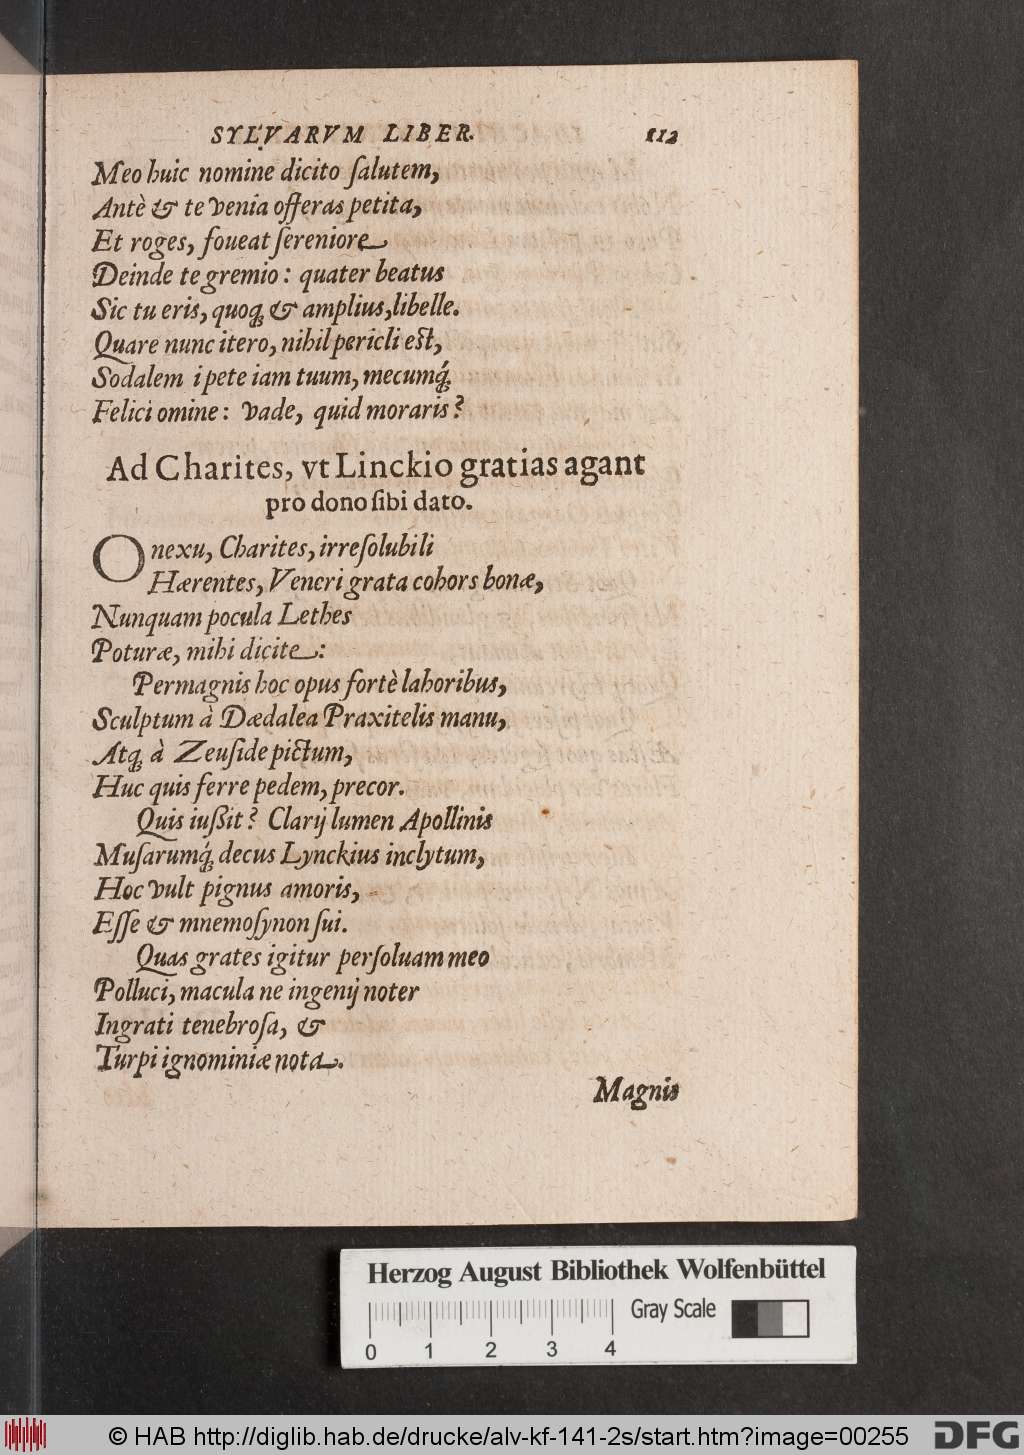 SYLVARVM LIBER. 112
Meo huic nomine dicito ſalutem,
Antè & te venia offeras petita,
Et roges, foueat ſereniore
Deinde te gremio: quater beatus
Sic tu eris, quoq́; & amplius, libelle.
Quare nunc itero, nihil pericli eſt,
Sodalem i pete iam tuum, mecumq́;
Felici omine: vade, quid moraris?
Ad Charites, vt Linckio gratias agant
pro dono ſibi dato.
O nexu, Charites, irreſolubili
Hærentes, Veneri grata cohors bonæ,
Nunquam pocula Lethes
Poturæ, mihi dicite:
Permagnis hoc opus fortè laboribus,
Sculptum à Dædalea Praxitelis manu,
Atq; à Zeuſide pictum,
Huc quis ferre pedem, precor.
Quis iußit? Clarij lumen Apollinis
Muſarumq́; decus Lynckius inclytum,
Hoc vult pignus amoris,
Eſſe & mnemoſynon ſui.
Quas grates igitur perſoluam meo
Polluci, macula ne ingenij noter
Ingrati tenebroſa, &
Turpi ignominiæ nota.
Magnis
Herzog August Bibliothek Wolfenbüttel
Gray Scale
0 1 2 3 4
© HAB http://diglib.hab.de/drucke/alv-kf-141-2s/start.htm?image=00255
DFG